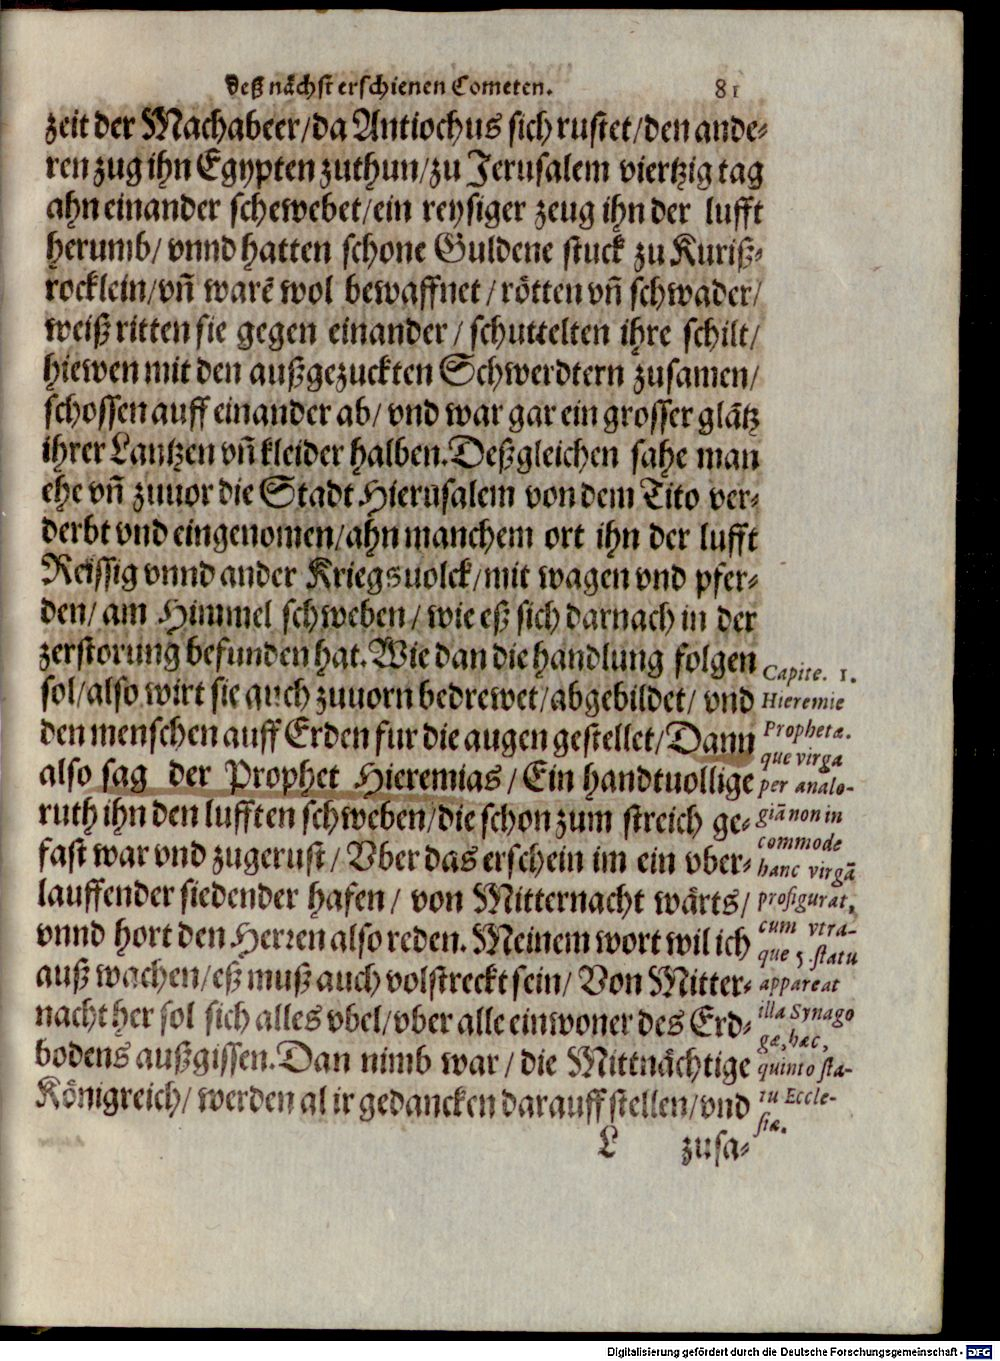 deß nächst erschienen Cometen. 81
zeit der Machabeer/da Antiochus sich rustet/den ande-
ren zug ihn Egypten zuthun/zu Jerusalem viertzig tag
ahn einander schewebet/ein reysiger zeug ihn der lufft
herumb/ vnnd hatten schone Guldene stuck zu Kuriß-
rocklein/vn̄ warē wol bewaffnet/rötten vn̄ schwader/
weiß ritten sie gegen einander/schuttelten ihre schilt/
hiewen mit den außgezuckten Schwerdtern zusamen/
schossen auff einander ab/ vnd war gar ein grosser glātz
ihrer Lantzen vn̄ kleider halben. Deßgleichen sahe man
ehe vn̄ zuuor die Stadt Hierusalem von dem Tito ver-
derbt vnd eingenomen/ahn manchem ort ihn der lufft
Reissig vnnd ander Kriegsuolck/mit wagen vnd pfer-
den/ am Himmel schweben/wie eß sich darnach in der
zerstorung befunden hat. Wie dan die handlung folgen
sol/also wirt sie auch zuuorn bedrewet/abgebildet/ vnd
den menschen auff Erden fur die augen gestellet/Dann
also sag der Prophet Hieremias/Ein handtuollige
ruth ihn den lufften schweben/die schon zum streich ge-
fast war vnd zugerust/Vber das erschein im ein vber-
lauffender siedender hafen/ von Mitternacht wärts/
vnnd hort den Herren also reden. Meinem wort wil ich
auß wachen/eß muß auch volstreckt sein/Von Mitter-
nacht her sol sich alles vbel/vber alle einwoner des Erd-
bodens außgissen. Dan nimb war/die Mittnächtige
Königreich/ werden al ir gedancken darauff stellen/vnd
L zusa-
Capite. 1.
Hieremie
Prophetæ.
que virga
per analo-
giā non in
commode
hanc virgā
profigurat,
cum vtra-
que 5 statu
appareat
illa Synago
gæ, hæc,
quinto sta-
tu Eccle-
siæ.
Digitalisierung gefördert durch die Deutsche Forschungsgemeinschaft - DFG